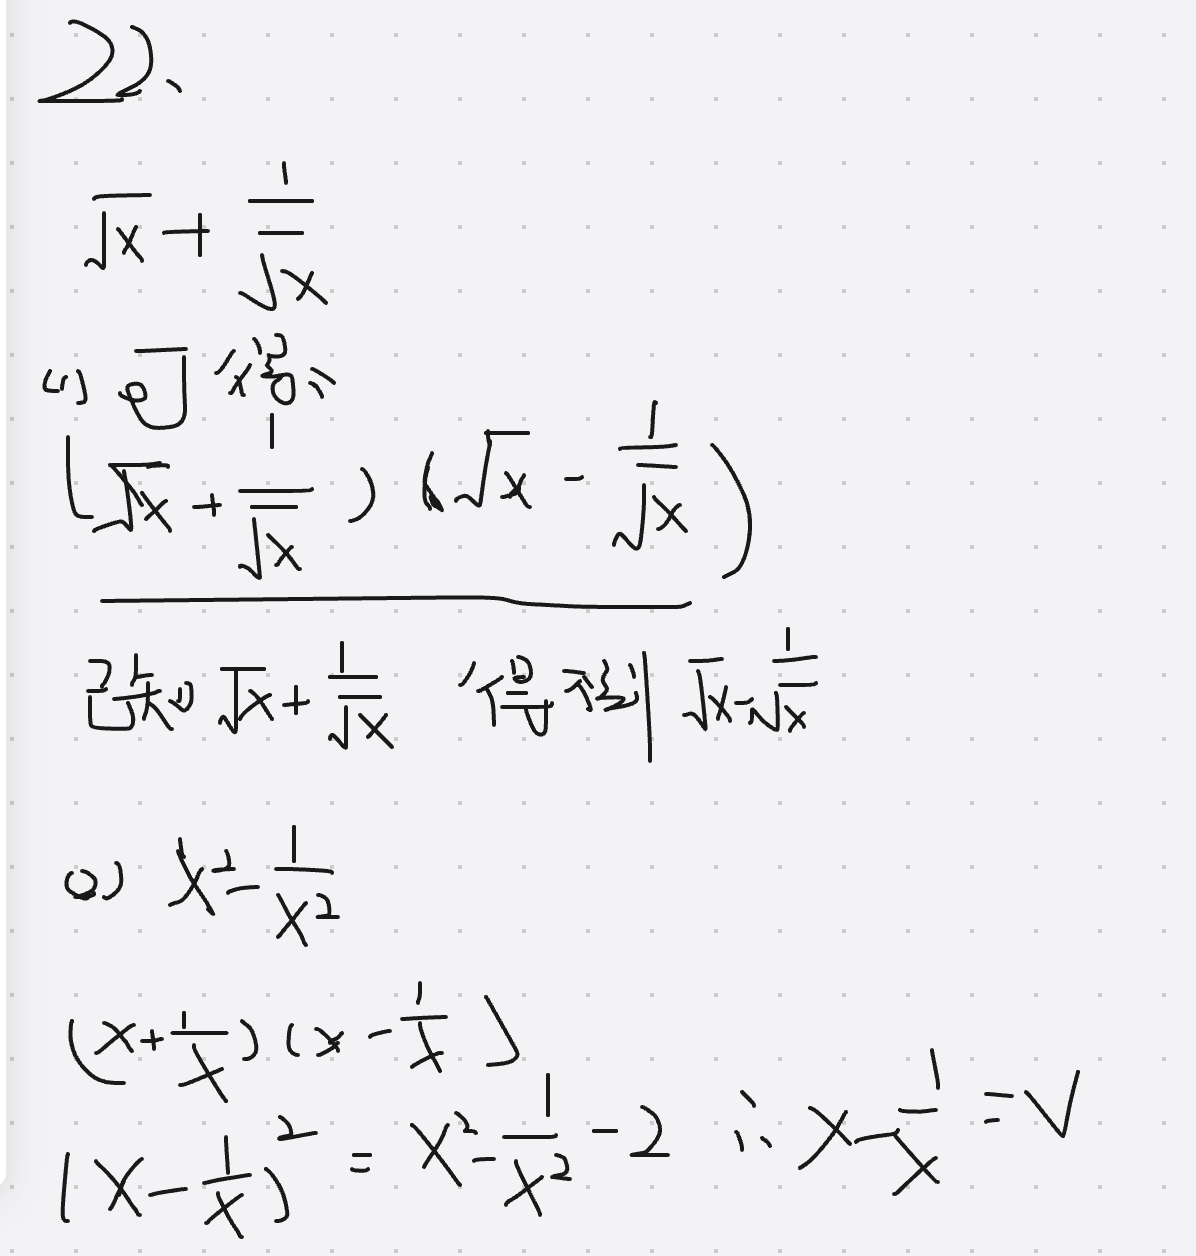 22、
√x + 1/√x
(1) 可得
(√x + 1/√x) (√x - 1/√x)
已知 √x + 1/√x 得到 √x - 1/√x
(2) x² - 1/x²
(x + 1/x) (x - 1/x)
(x - 1/x)² = x² - 1/x² - 2 ∴ x - 1/x = √